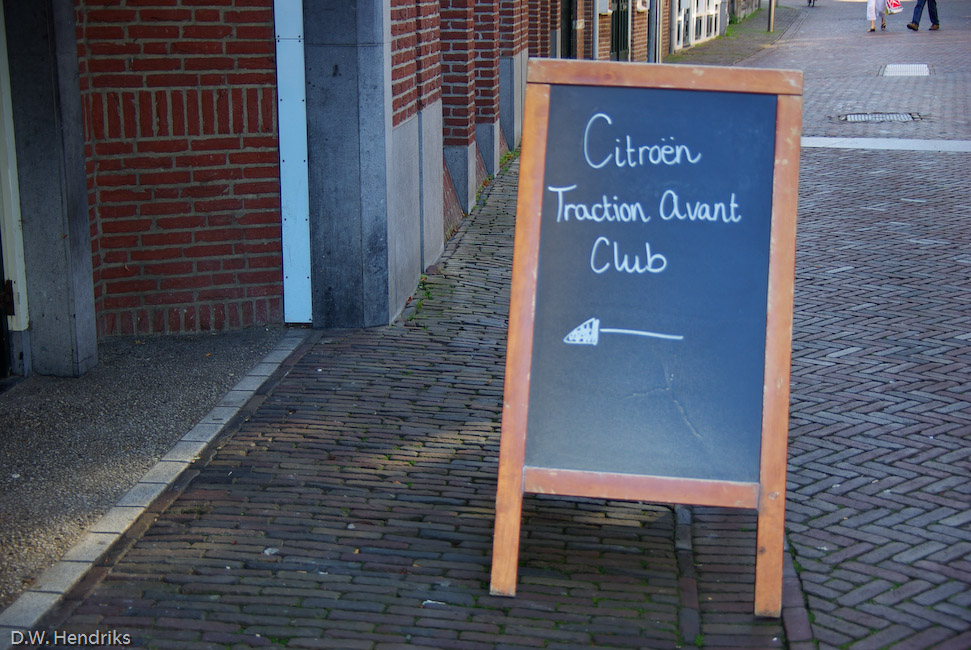 Citroën
Traction Avant
Club
D.W. Hendriks